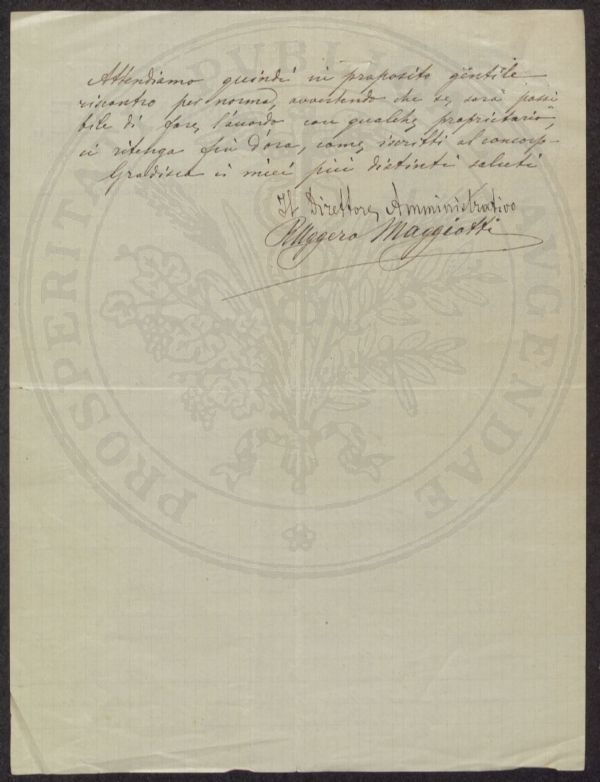 Attendiamo quindi in proposito gentile
riscontro per norma, avvertendo che se, sarà possi
bile di fare, l'accordo con qualche, proprietario,
ci ritenga fin d'ora, come, iscritti al concorso-
Gradisca i miei più distinti saluti
Il Direttore, Amministrativo
Ruggero Maggiotti
PROSPERITA PVBLI AVGENDAE